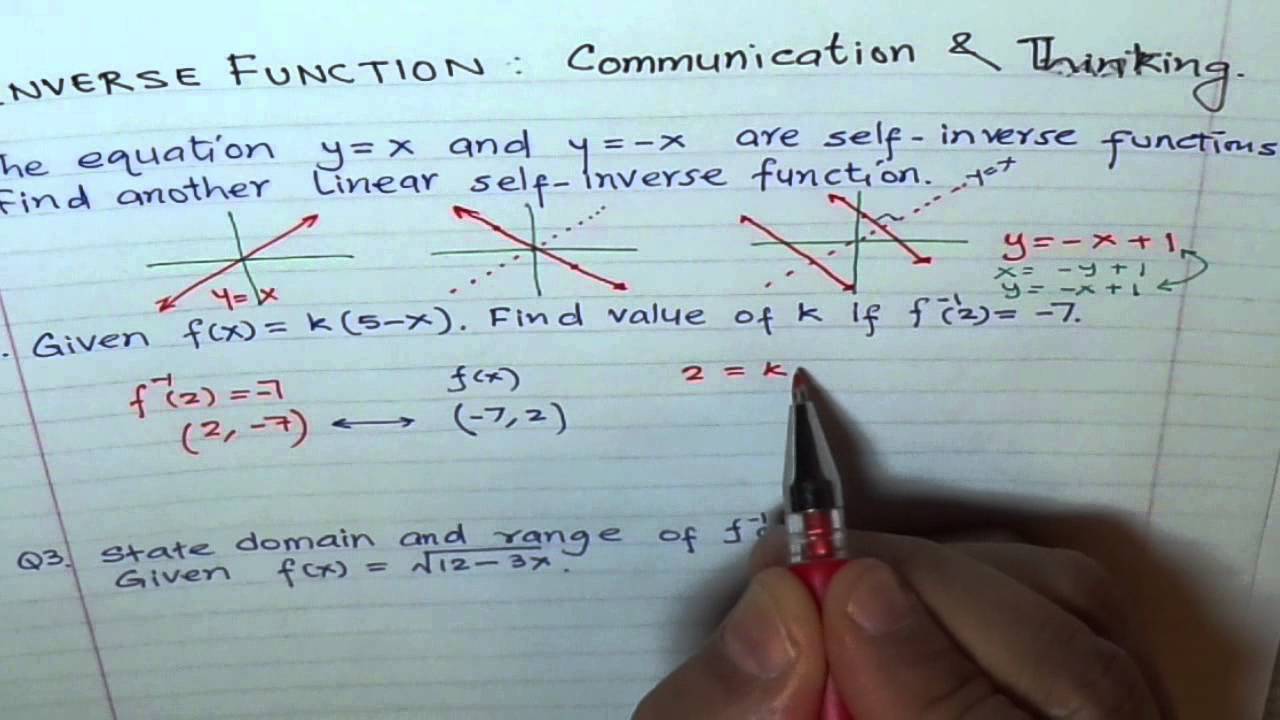 INVERSE FUNCTION : Communication & Thinking.
The equation y=x and y=-x are self-inverse functions
Find another linear self-inverse function.
y=x
y=x
y = -x + 1
x = -y + 1
y = -x + 1
. Given f(x) = k(5-x). Find value of k if f⁻¹(2) = -7.
f⁻¹(2) = -7
f(x)
2 = k
(2, -7) ⟷ (-7, 2)
Q3. State domain and range of f⁻¹
Given f(x) = √12-3x.